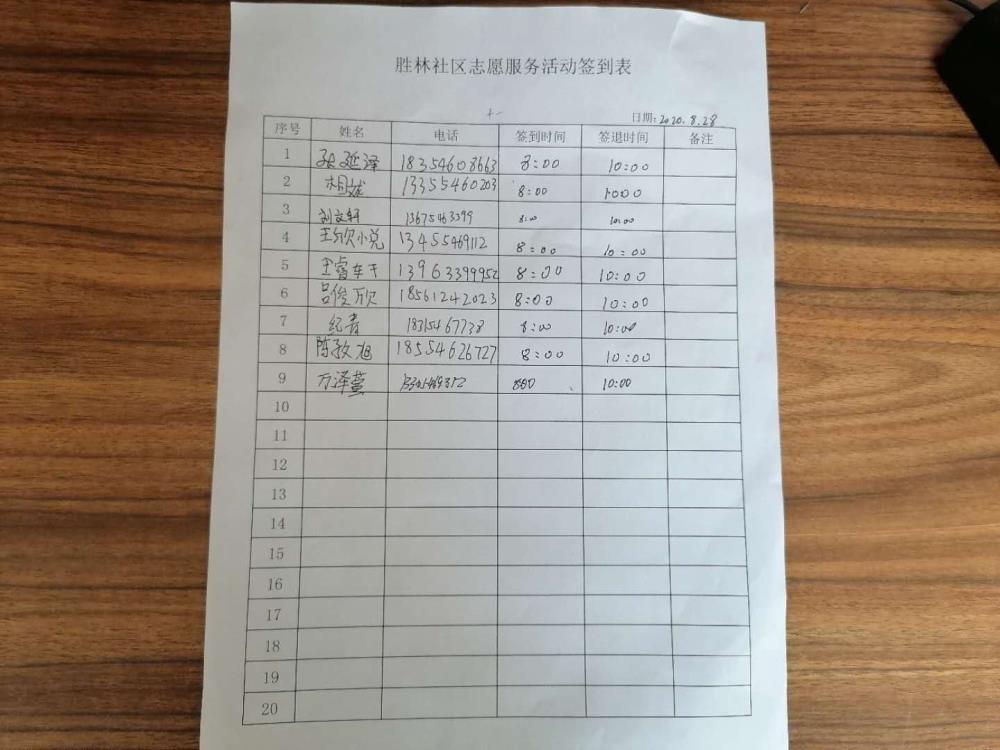 胜林社区志愿服务活动签到表
日期:2020.8.28
序号 姓名 电话 签到时间 签退时间 备注
1 延泽 18354608663 8:00 10:00
2 相斌 13355460203 8:00 1000
3 刘文轩 13675463399 8:00 10:00
4 王欣小悦 13455469112 8:00 10:00
5 王睿 13963399952 8:00 10:00
6 吕俊欣 18561242023 8:00 10:00
7 纪青 18315467738 8:00 10:00
8 陈敖旭 18554626727 8:00 10:00
9 万泽萱 800 10:00
10
11
12
13
14
15
16
17
18
19
20